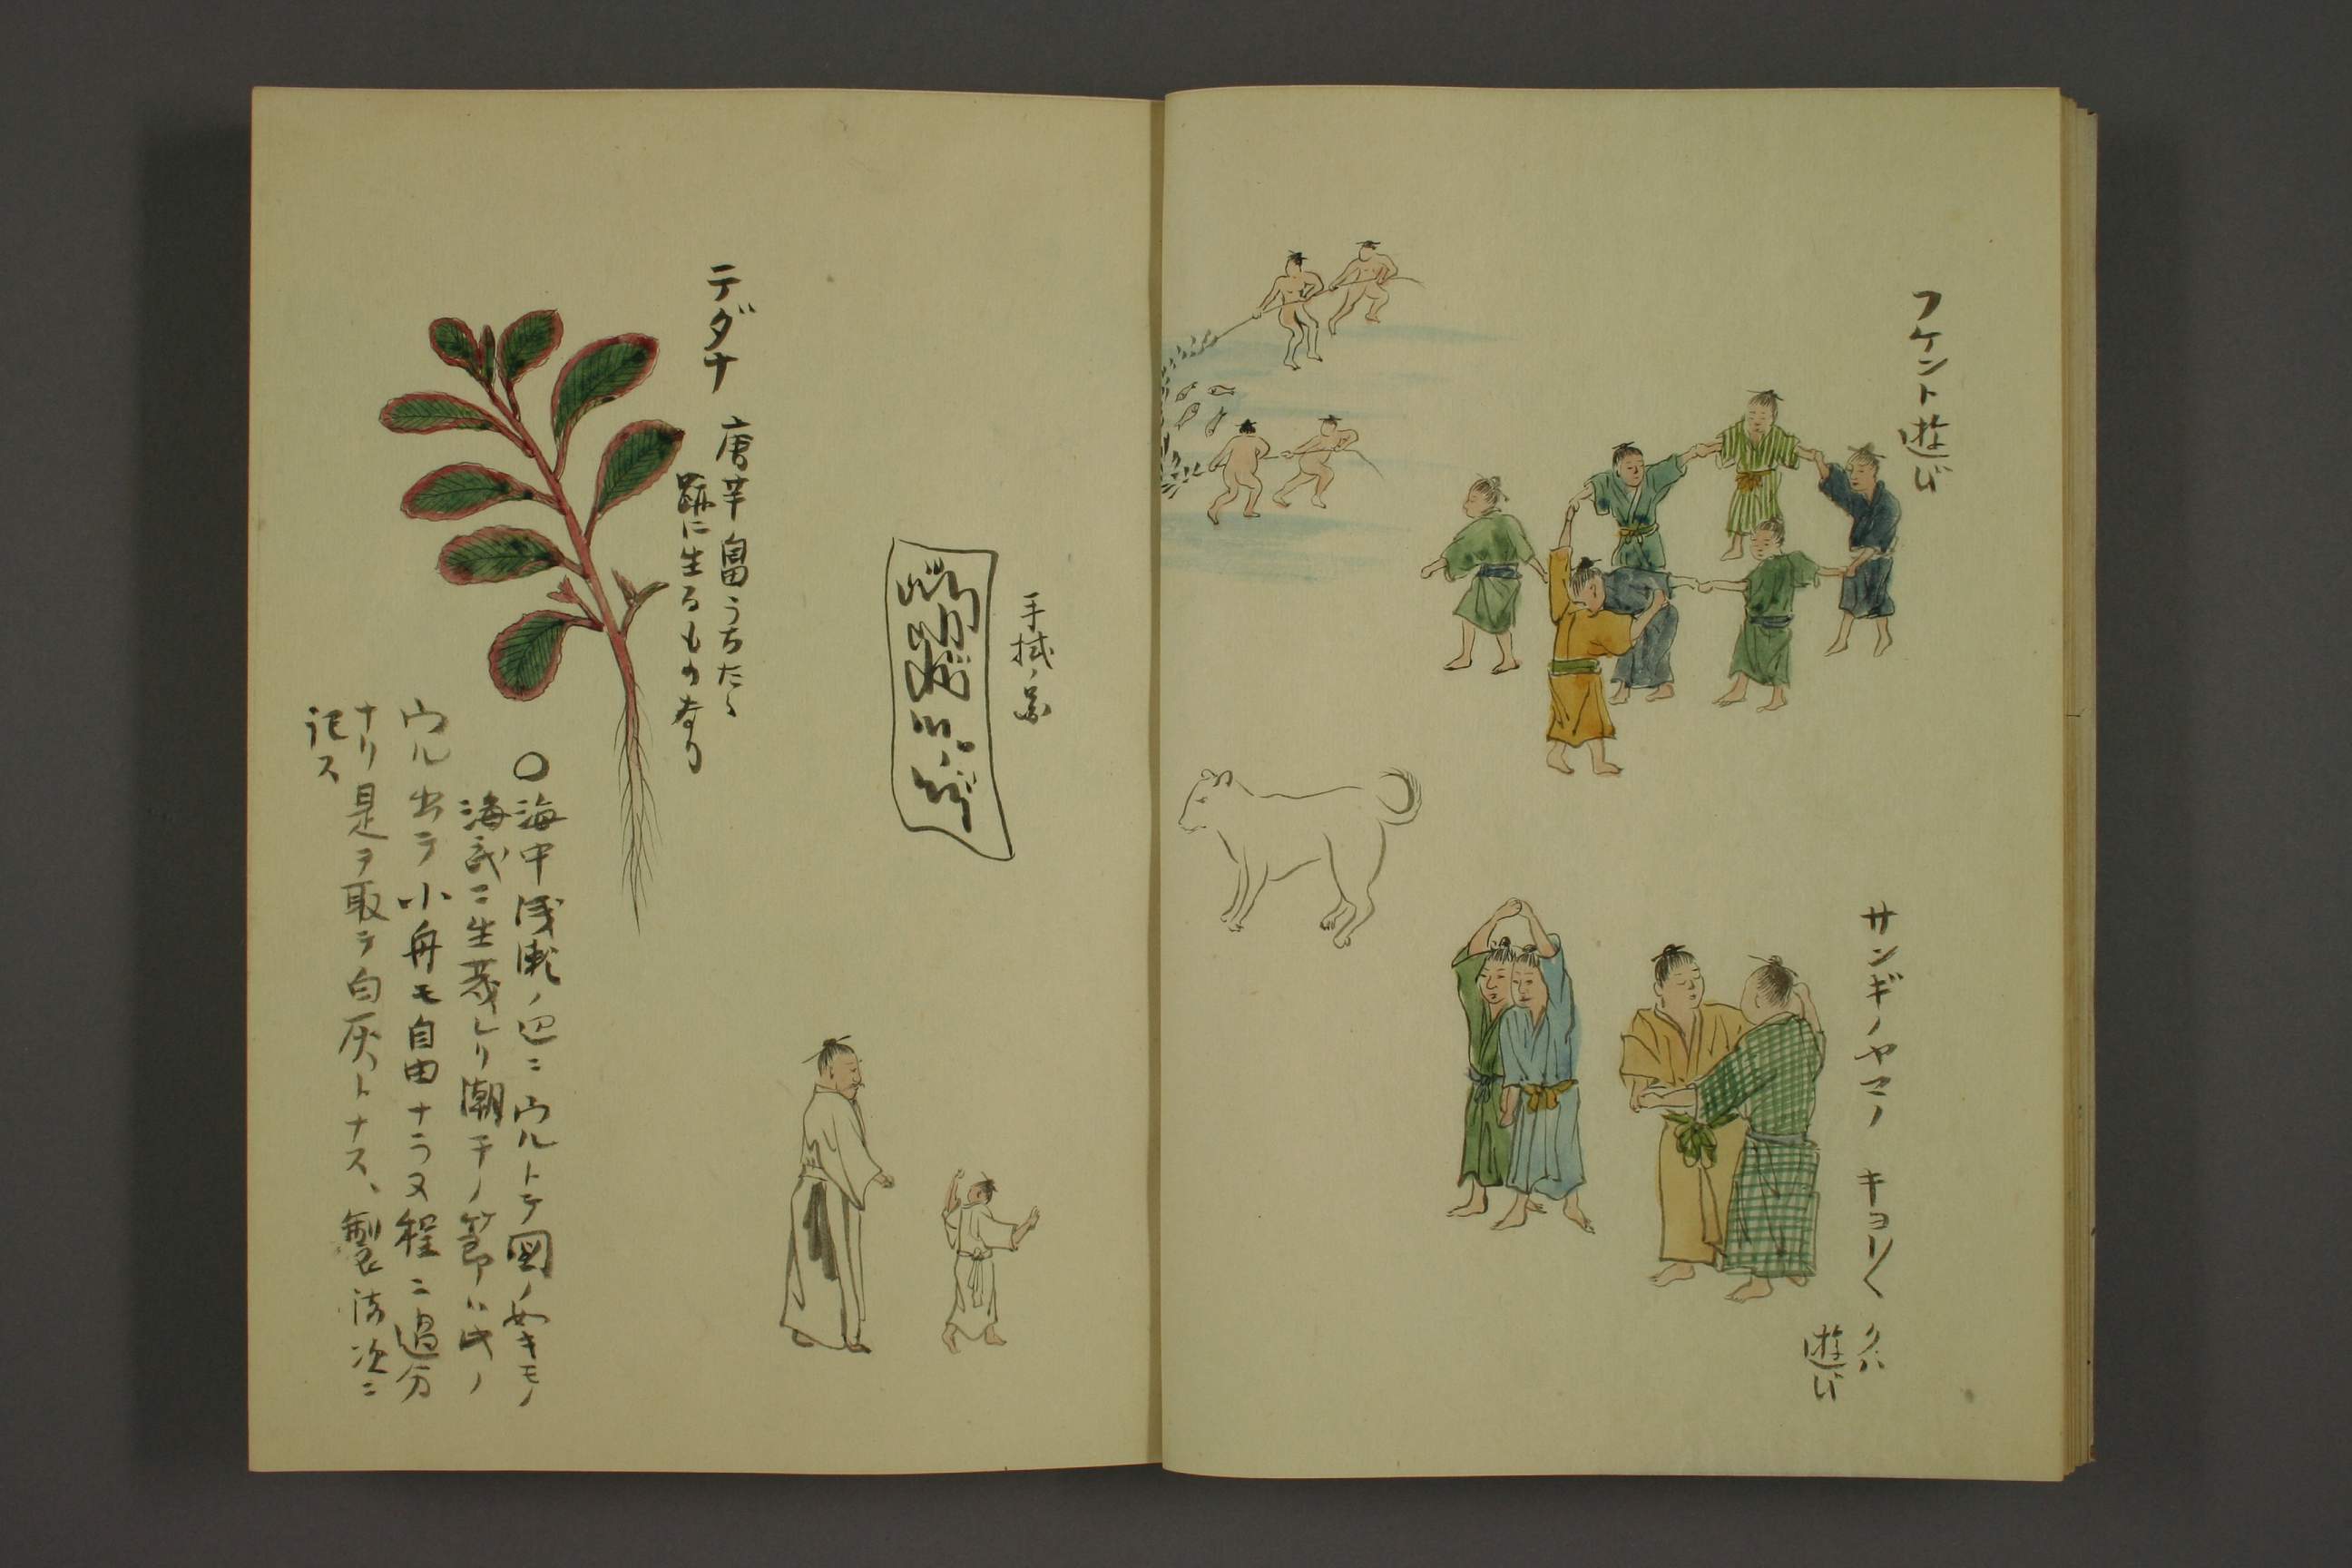 フケント遊び
サンギノヤマノ キヨリ〱
遊び
手拭ノ
テダナ 唐芋畠うちたる
跡に生るもの有り
〇海中浅瀬ノ辺ニウルトテ図ノ如キモノ
海底ニ生茂レリ潮干ノ節ハ此ノ
ウル出テ小舟モ自由ナラヌ程ニ過分
ナリ是ヲ取テ白灰トナス、製法次ニ
記ス